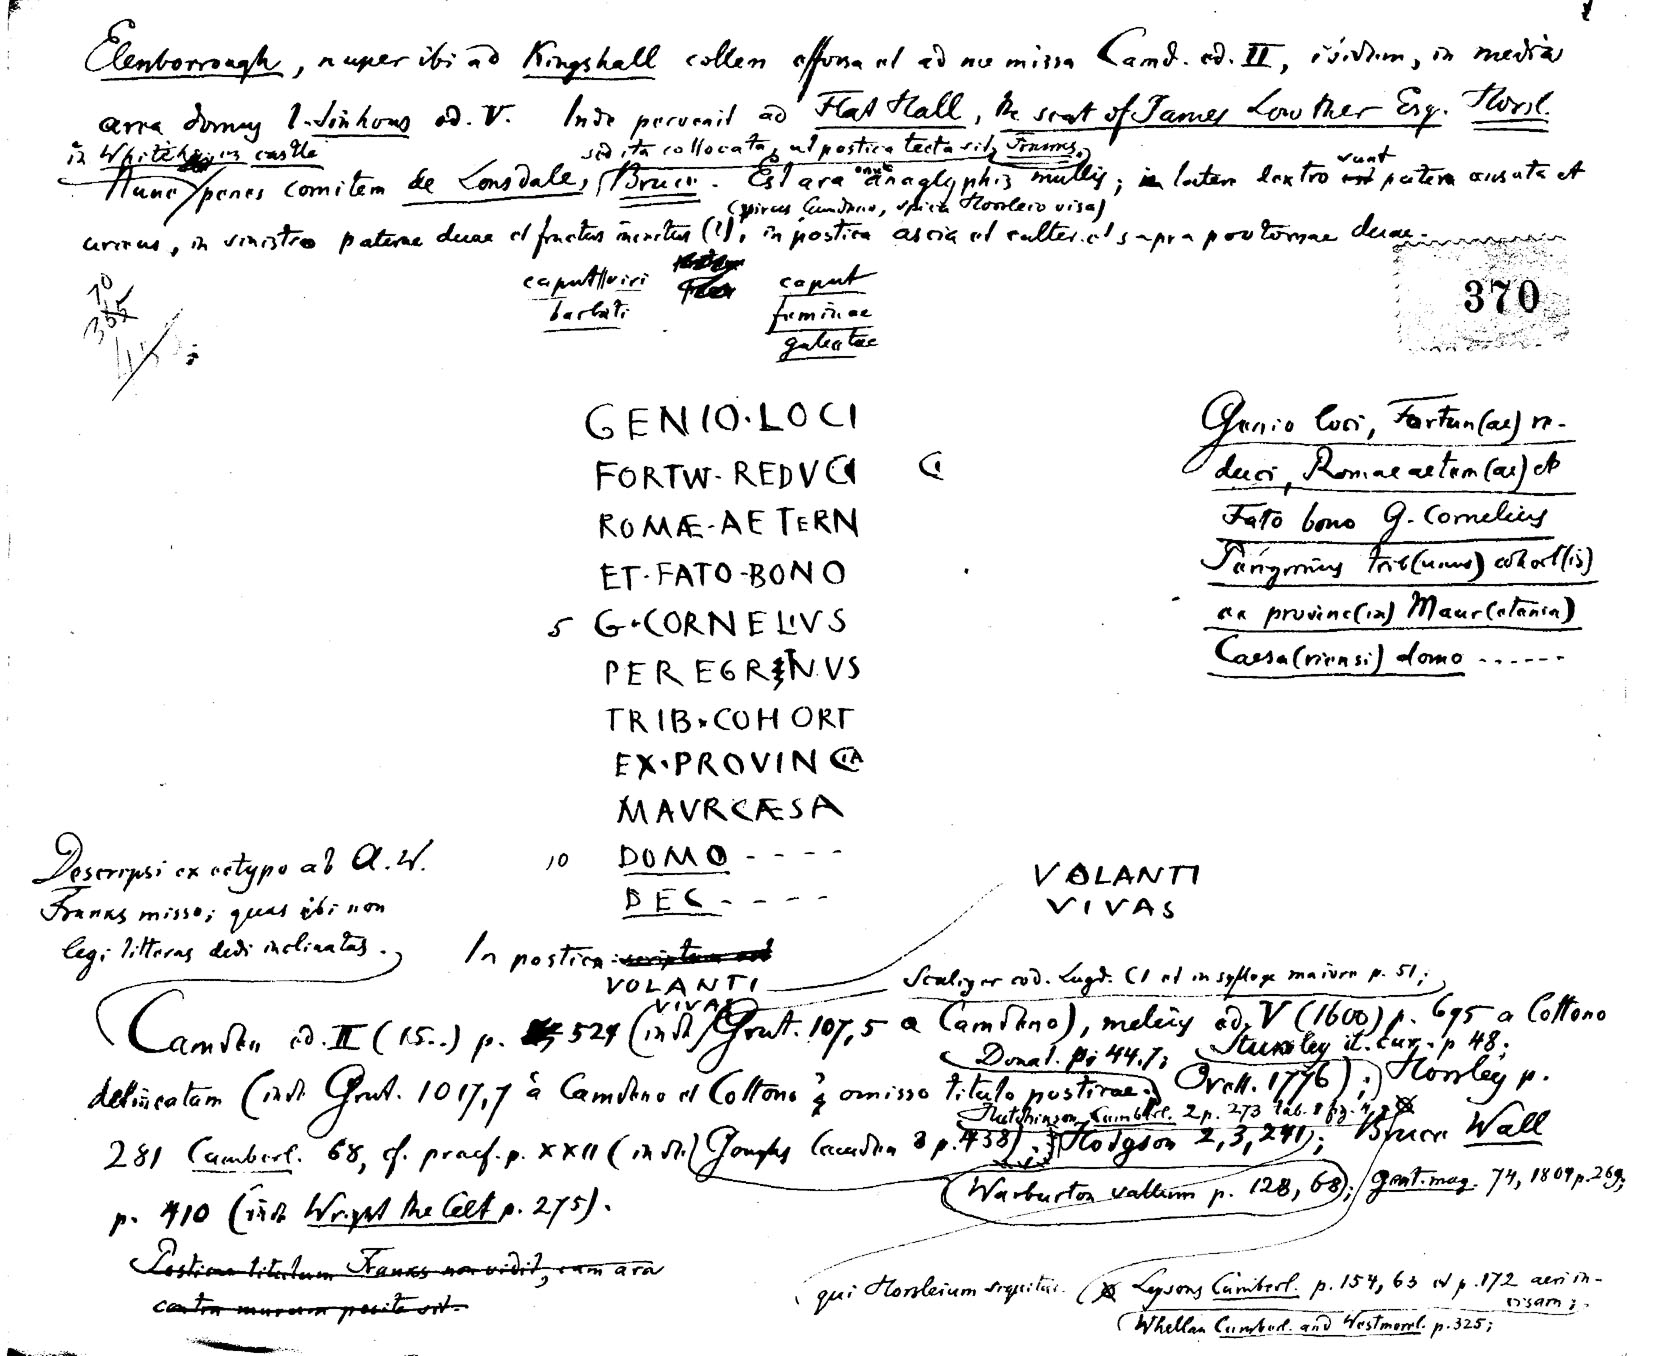 Elenborrough, nuper ibi ad Kingshall collem effossa et ad me missa Camd. ed. II, ibidem, in media
area domus I. Sinhous ed. V. Inde pervenit ad Flat Hall, the seat of James Lowther Esq. Horsl.
in Whitehaven castle sed ita collocata, ut postica tecta sit, Franks.
Nunc penes comitem de Lonsdale, Bruce. Est ara anaglyphis multis; in latere dextro sunt patera ansata et
(pirus Camdeno, spica Horsleio visa)
urceus, in sinistro paterae duae et fructus inversus (?), in postica ascia et culter et supra protomae duae.
caput viri caput
barbati feminae
galeatae
370
70
365
GENIO·LOCI
FORTVN·REDVCI CI
ROMÆ·AETERN
ET·FATO·BONO
5 G·CORNELIVS
PEREGRINVS
TRIB·COHORT
EX·PROVINCIA
MAVRCÆSA
10 DOMO - - - -
DEC - - - -
Genio loci, Fortun(ae) re-
duci, Romae aetern(ae) et
Fato bono G. Cornelius
Peregrinus trib(unus) cohort(is)
ex provinc(ia) Maur(etania)
Caesa(riensi) domo ------
Descripsi ex ectypo ab A.W.
Franks misso; quas ibi non
legi litteras dedi inclinatas.
VOLANTI
VIVAS
In postica: scriptum est
VOLANTI
VIVAS
Scaliger cod. Lugd. CI et in sylloge maiore p. 51;
Camden ed. II (15..) p. 524 (inde Grut. 107,5 a Camdeno), melius ed. V (1600) p. 695 a Cottono
Donat. p. 44,7; Stukeley it. cur. p 48;
delineatam (inde Grut. 1017,7 a Camdeno et Cottono omisso titulo posticae. Orell. 1776); Horsley p.
Hutchinson Cumberl. 2 p. 273 tab.
281 Cumberl. 68, cf. praef. p. XXII (inde Goughs Camden 3 p. 438); Hodgson 2,3,241; Bruce Wall
Warburton vallum p. 128, 68; Gent. mag. 74, 1804 p. 269;
p. 410 (inde Wright the Celt p. 275).
Posticae titulum Franks non vidit, cum ara
contra murum posita sit.
qui Horsleium sequitur. Lysons Cumberl. p. 154, 63 et p. 172 aeri in-
cisam;
Whellan Cumberl. and Westmorel. p. 325;